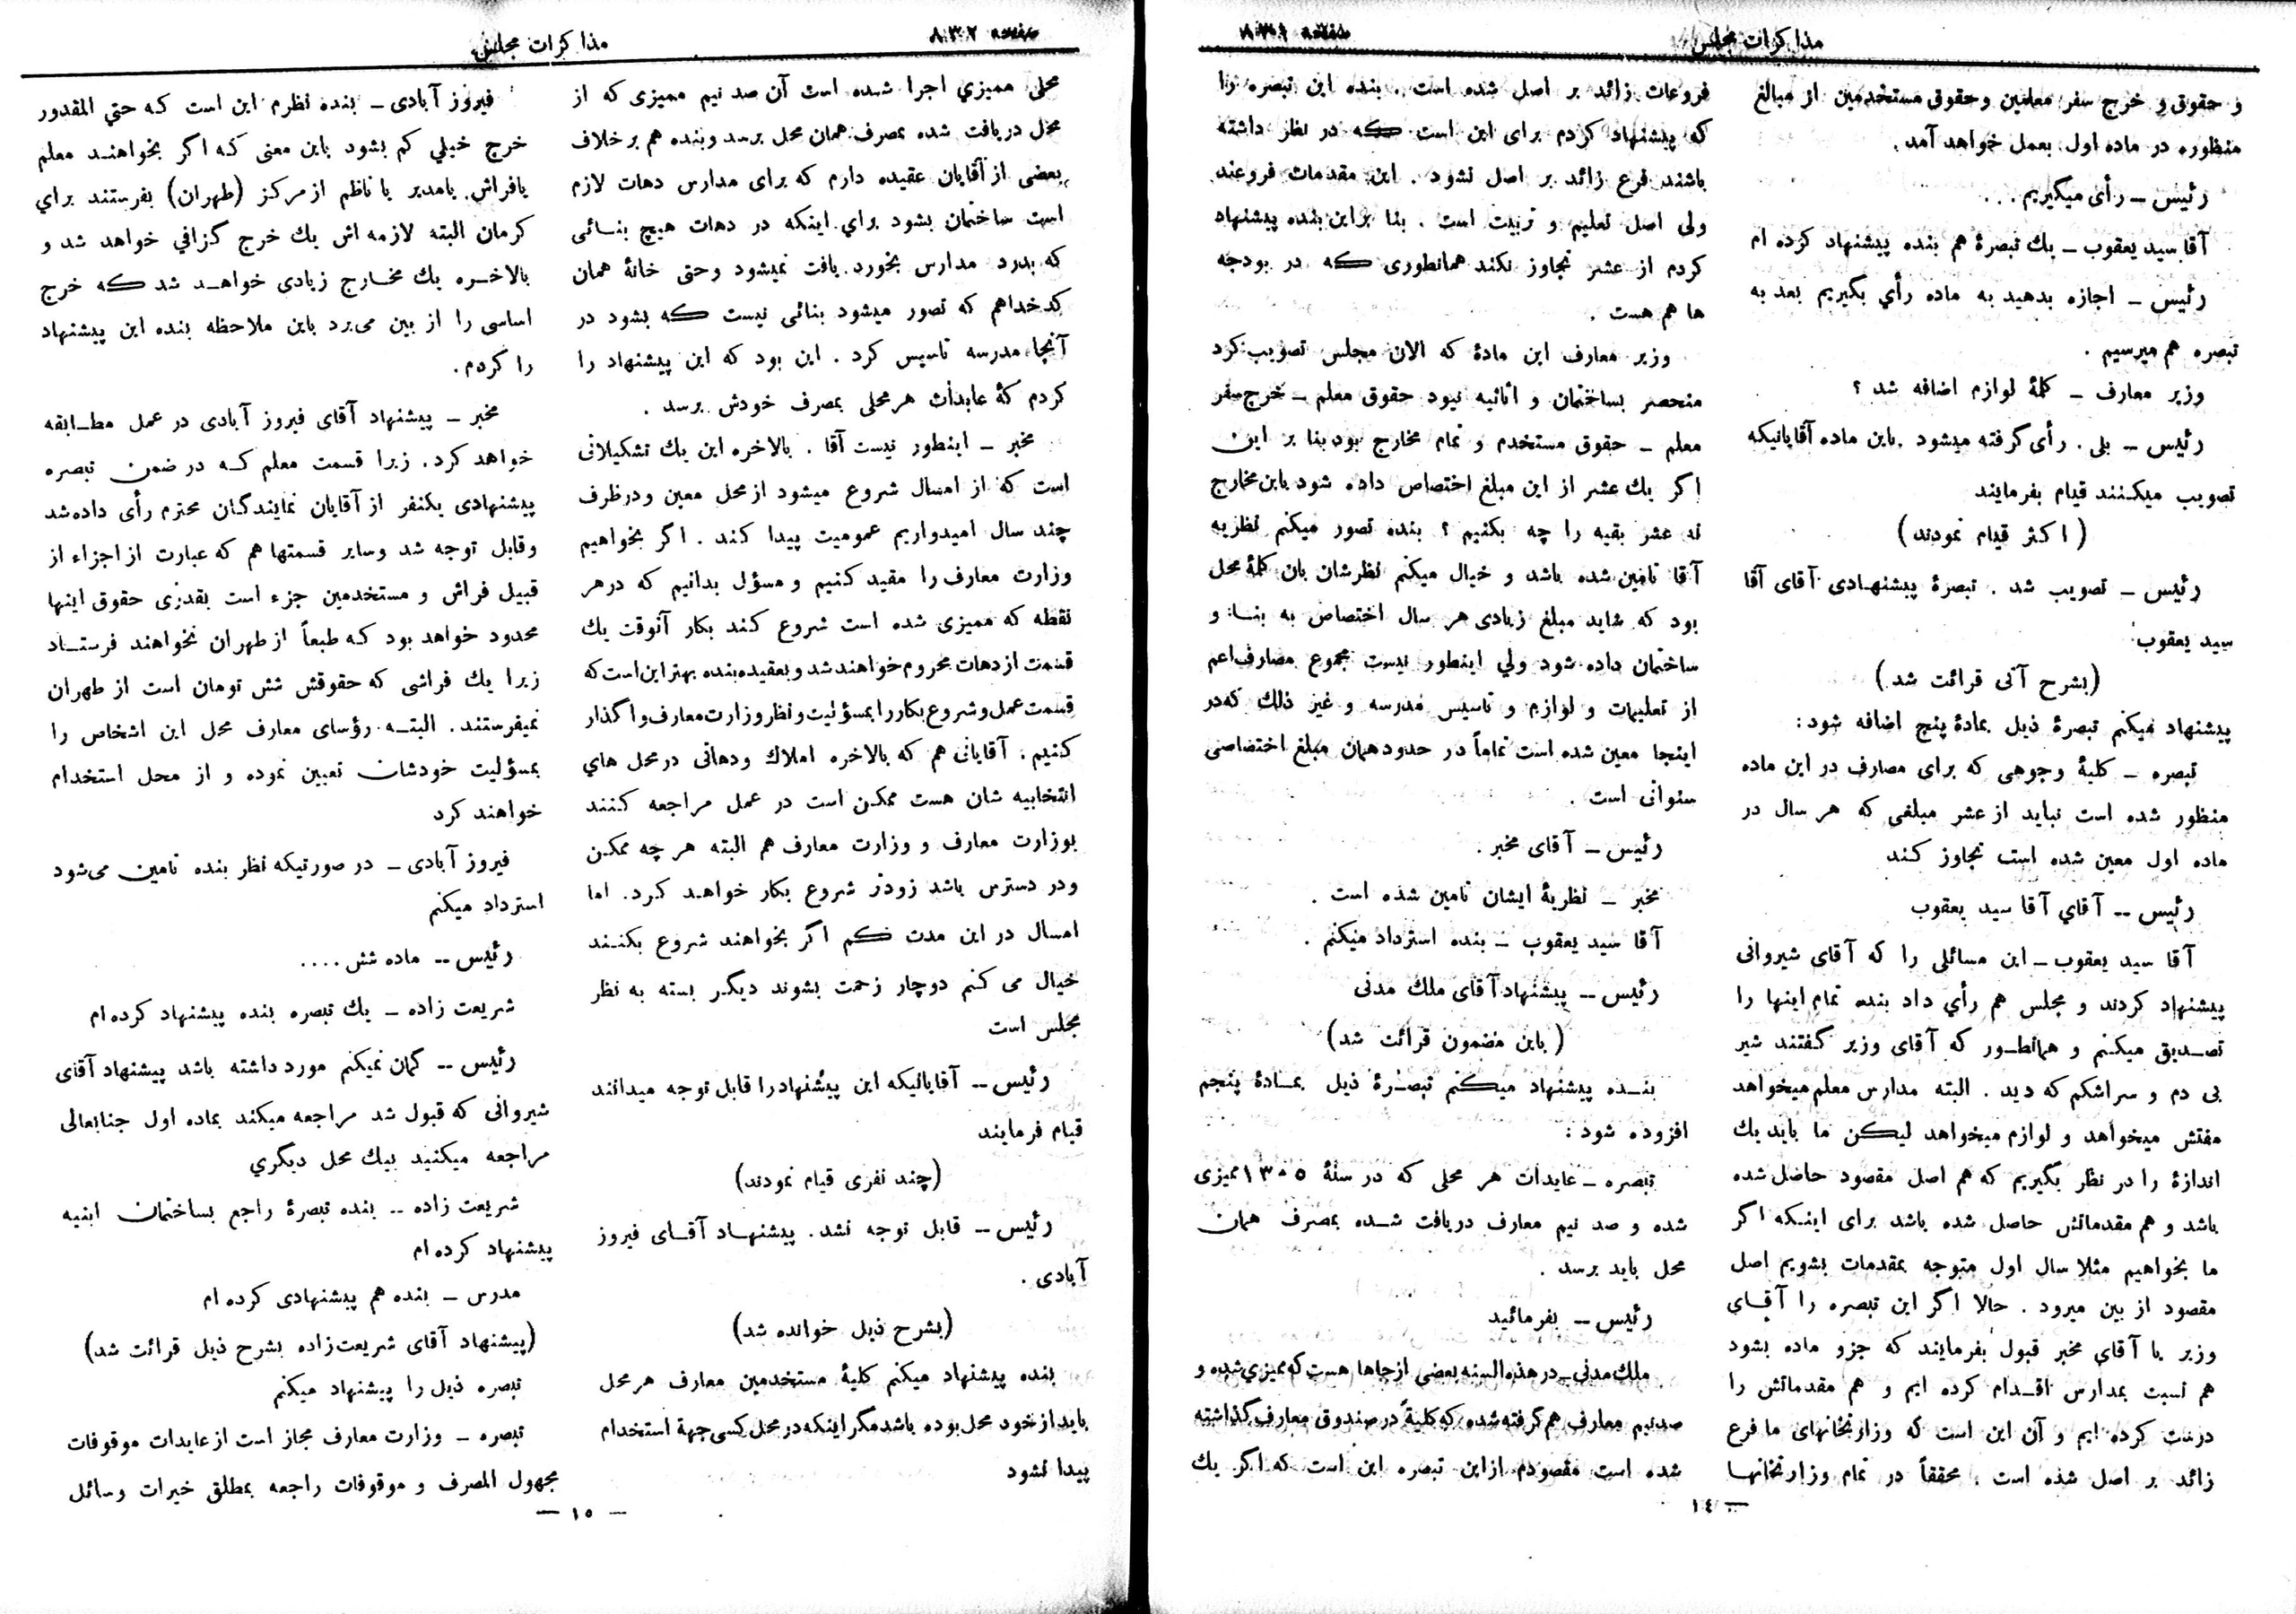 مذاکرات مجلس
صفحه ۸۳۱
و حقوق و خرج سفر معلمین و حقوق مستخدمین از مبالغ
منظوره در ماده اول بعمل خواهد آمد.
رئیس ــ رأی میگیریم . . .
آقا سید یعقوب ــ یك تبصرهٔ هم بنده پیشنهاد کرده ام
رئیس ــ اجازه بدهید به ماده رأي بگیریم بعد به
تبصره هم میرسیم .
وزیر معارف ــ کلمهٔ لوازم اضافه شد ؟
رئیس ــ بلی . رأی گرفته میشود باین ماده آقایانیکه
تصویب میکنند قیام بفرمایند
( اکثر قیام نمودند )
رئیس ــ تصویب شد . تبصرهٔ پیشنهادی آقای آقا
سید یعقوب
(بشرح آتی قرائت شد )
پیشنهاد میکنم تبصرهٔ ذیل بمادهٔ پنج اضافه شود :
تبصره ــ کلیهٔ وجوهی که برای مصارف در این ماده
منظور شده است نباید از عشر مبلغی که هر سال در
ماده اول معین شده است تجاوز کند
رئیس ــ آقاي آقا سید یعقوب
آقا سید یعقوب ــ این مسائلی را که آقای شیروانی
پیشنهاد کردند و مجلس هم رأي داد بنده تمام اینها را
تصــدیق میکنم و همانطــور که آقای وزیر گفتند شیر
بی دم و سر اشکم که دید . البته مدارس معلم میخواهد
مفتش میخواهد و لوازم میخواهد لیکن ما باید یك
اندازهٔ را در نظر بگیریم که هم اصل مقصود حاصل شده
باشد و هم مقدماتش حاصل شده باشد برای اینکه اگر
ما بخواهیم مثلا سال اول متوجه بمقدمات بشویم اصل
مقصود از بین میرود . حالا اگر این تبصره را آقــاي
وزیر یا آقاي مخبر قبول بفرمایند که جزو ماده بشود
هم نسبت بمدارس اقــدام کرده ایم و هم مقدماتش را
درست کرده ایم و آن این است که وزارتخانهای ما فرع
زائد بر اصل شده است . محققاً در تمام وزارتخانها
فروعات زائد بر اصل شده است . بنده این تبصره را
که پیشنهاد کردم برای این است که در نظر داشته
باشند فرع زائد بر اصل نشود . این مقدمات فروعند
ولی اصل تعلیم و تربیت است . بنا براین بنده پیشنهاد
کردم از عشر تجاوز نکند همانطوری که در بودجه
ها هم هست .
وزیر معارف این مادهٔ که الان مجلس تصویب کرد
منحصر بساختمان و اثاثیه نبود حقوق معلم ــ خرج سفر
معلم ــ حقوق مستخدم و تمام مخارج بود بنا بر این
اگر یك عشر از این مبلغ اختصاص داده شود باین مخارج
نه عشر بقیه را چه بکنیم ؟ بنده تصور میکنم نظریه
آقا تامین شده باشد و خیال میکنم نظرشان بان کلمهٔ محل
بود که شاید مبلغ زیادی هر سال اختصاص به بنــا و
ساختمان داده شود ولي اینطور نیست مجموع مصارف اعم
از تعلیمات و لوازم و تاسیس مدرسه و غیر ذلك که در
اینجا معین شده است تماماً در حدود همان مبلغ اختصاصی
سنواتی است .
رئیس ــ آقای مخبر .
مخبر ــ نظریهٔ ایشان تامین شده است .
آقا سید یعقوب ــ بنده استرداد میکنم .
رئیس ــ پیشنهاد آقای ملك مدنی
( باین مضمون قرائت شد )
بنــده پیشنهاد میکنم تبصرهٔ ذیل بمــادهٔ پنجم
افزوده شود :
تبصره ــ عایدات هر محلی که در سنهٔ ۱۳۰۵ ممیزی
شده و صد نیم معارف دریافت شــده بمصرف همان
محل باید برسد .
رئیس ــ بفرمائید
ملك مدنی ــ در هذه السنه بعضی از جاها هست که ممیزی شده و
صد نیم معارف هم گرفته شده که کلیةً در صندوق معارف گذاشته
شده است مقصودم از این تبصره این است که اگر یك
ــ ۱٤
مذاکرات مجلس
صفحه ۸۳۲
محلی ممیزي اجرا شده است آن صد نیم ممیزی که از
محل دریافت شده بمصرف همان محل برسد و بنده هم بر خلاف
بعضی از آقایان عقیده دارم که برای مدارس دهات لازم
است ساختمان بشود براي اینکه در دهات هیچ بنــائی
که بدرد مدارس بخورد یافت نمیشود وحتی خانهٔ همان
کدخداهم که تصور میشود بنائی نیست که بشود در
آنجا مدرسه تاسیس کرد . این بود که این پیشنهاد را
کردم کهٔ عایدات هر محلی بمصرف خودش برسد .
مخبر ــ اینطور نیست آقا . بالاخره این یك تشکیلاتی
است که از امسال شروع میشود از محل معین ودر ظرف
چند سال امیدواریم عمومیت پیدا کند . اگر بخواهیم
وزارت معارف را مقید کنیم و مسؤل بدانیم که در هر
نقطه که ممیزی شده است شروع کند بکار آنوقت یك
قسمت از دهات محروم خواهند شد و بعقیده بنده بهتر این است که
قسمت عمل و شروع بکار را بمسؤلیت و نظر وزارت معارف واگذار
کنیم . آقایانی هم که بالاخره املاك ودهاتی در محل هاي
انتخابیه شان هست ممکن است در عمل مراجعه کنند
بوزارت معارف و وزارت معارف هم البته هر چه ممکن
ودر دسترس باشد زودتر شروع بکار خواهد کرد. اما
امسال در این مدت کم اگر بخواهند شروع بکنند
خیال می کنم دوچار زحمت بشوند دیگر بسته به نظر
مجلس است
رئیس ــ آقایانیکه این پیشنهاد را قابل توجه میدانند
قیام فرمایند
(چند نفری قیام نمودند)
رئیس ــ قابل توجه نشد . پیشنهــاد آقــای فیروز
آبادی .
(بشرح ذیل خوانده شد)
بنده پیشنهاد میکنم کلیهٔ مستخدمین معارف هر محل
باید از خود محل بوده باشد مگر اینکه در محل کسی جهة استخدام
پیدا نشود
فیروز آبادی ــ بنده نظرم این است که حتي المقدور
خرج خیلي کم بشود باین معنی که اگر بخواهند معلم
یافراش یامدیر یا ناظم از مرکز (طهران) بفرستند براي
کرمان البته لازمه اش یك خرج گزافي خواهد شد و
بالاخــره یك مخــارج زیادی خواهــد شد که خرج
اساسی را از بین می برد باین ملاحظه بنده این پیشنهاد
را کردم .
مخبر ــ پیشنهاد آقای فیروز آبادی در عمل مطــابقه
خواهد کرد . زیرا قسمت معلم کــه در ضمن تبصره
پیشنهادی یکنفر از آقایان نمایندگان محترم رأی داده شد
وقابل توجه شد وسایر قسمتها هم که عبارت از اجزاء از
قبیل فراش و مستخدمین جزء است بقدری حقوق اینها
محدود خواهد بود که طبعاً از طهران نخواهند فرستــاد
زیرا یك فراشی که حقوقش شش تومان است از طهران
نمیفرستند . البتــه رؤسای معارف محل این اشخاص را
بمسؤلیت خودشان تعیین نموده و از محل استخدام
خواهند کرد
فیروز آبادی ــ در صورتیکه نظر بنده تامین می شود
استرداد میکنم
رئیس ــ ماده شش . . . .
شریعت زاده ــ یك تبصره بنده پیشنهاد کرده ام
رئیس ــ گمان نمیکنم مورد داشته باشد پیشنهاد آقای
شیروانی که قبول شد مراجعه میکند بماده اول جنابعالی
مراجعه میکنید بیك محل دیگري
شریعت زاده ــ بنده تبصرهٔ راجع بساختمان ابنیه
پیشنهاد کرده ام
مدرس ــ بنده هم پیشنهادی کرده ام
(پیشنهاد آقای شریعت زاده بشرح ذیل قرائت شد)
تبصره ذیل را پیشنهاد میکنم
تبصره ــ وزارت معارف مجاز است از عایدات موقوفات
مجهول المصرف و موقوفات راجعه بمطلق خیرات وسائل
ــ ۱۵ ــ